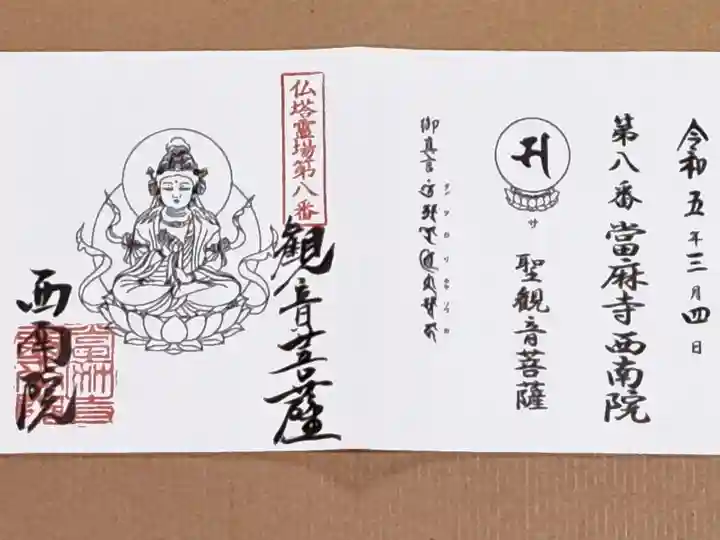 令和五年三月四日
第八番當麻寺西南院
サ
聖観音菩薩
御真言
仏塔靈場第八番
観音菩薩
西南院